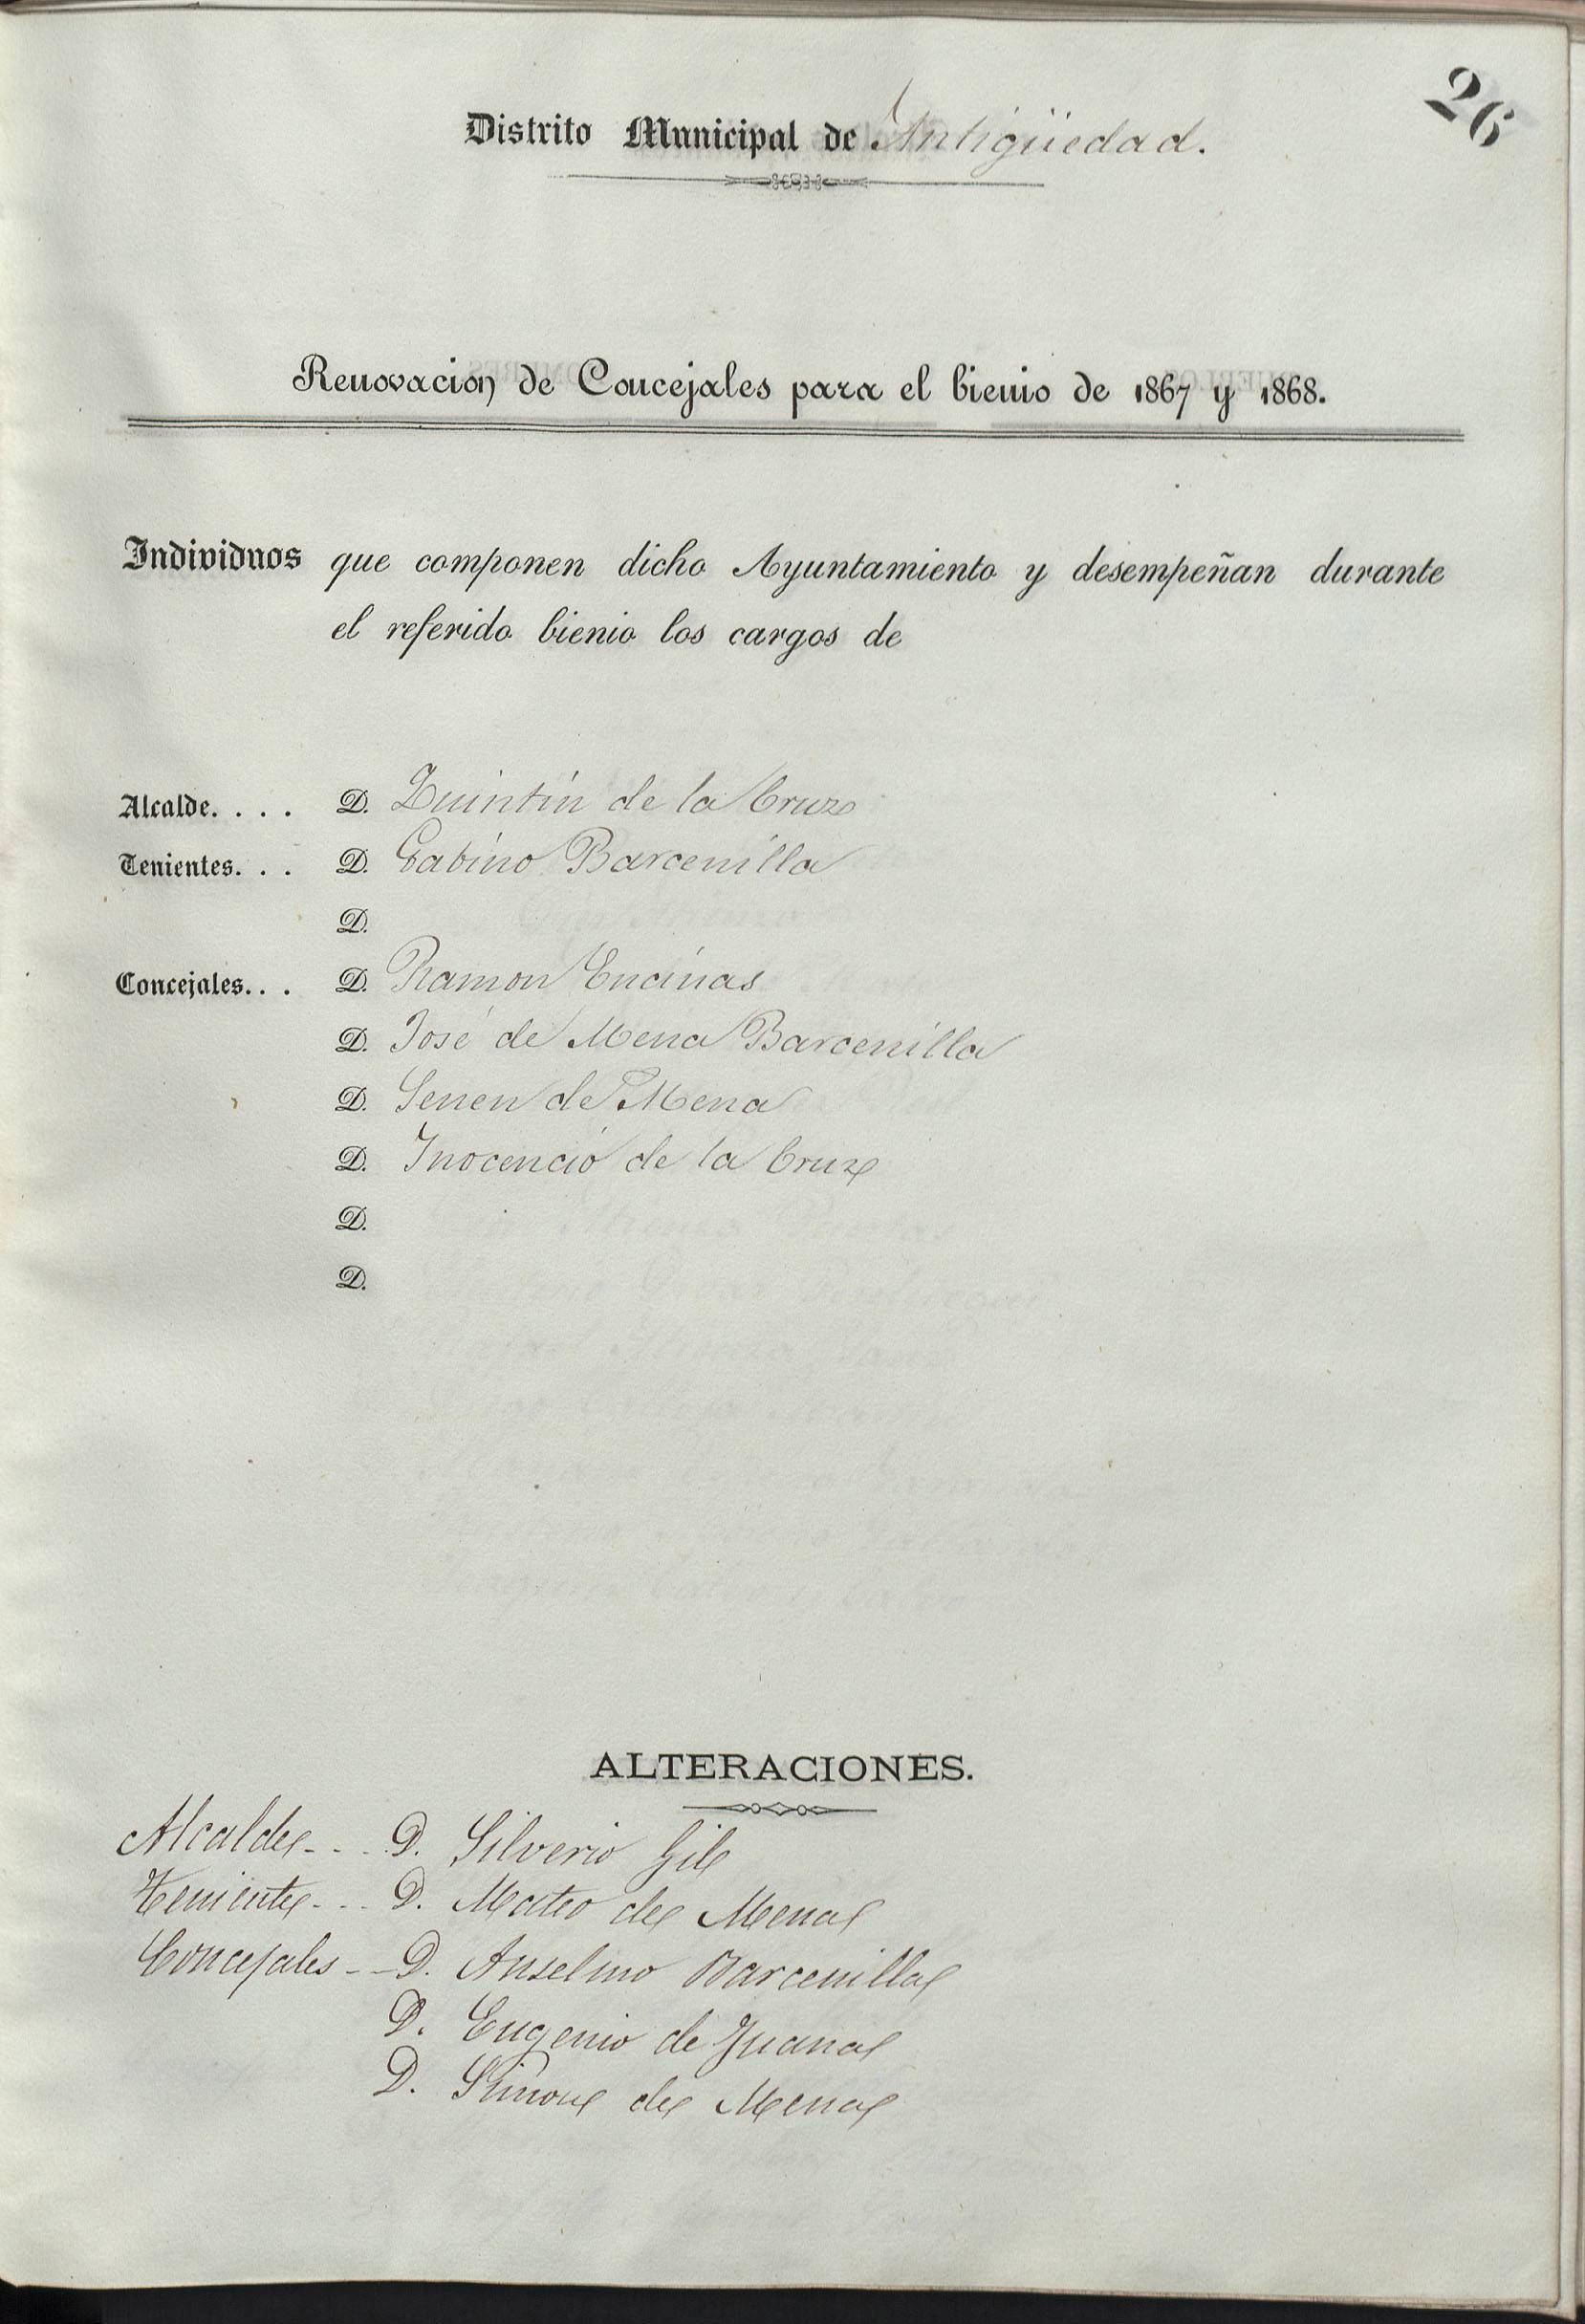 26
Distrito Municipal de Antigüedad.
Renovacion de Concejales para el bienio de 1867 y 1868.
Individuos que componen dicho Ayuntamiento y desempeñan durante
el referido bienio los cargos de
Alcalde. . . . D. Quintín de la Cruz
Tenientes. . . D. Gabino Barcenilla
D.
Concejales. . . D. Ramon Encinas
D. José de Mena Barcenilla
D. Senen de Mena
D. Inocencio de la Cruz
D.
D.
ALTERACIONES.
Alcalde - - - D. Silverio Gil
Teniente - - - D. Mateo de Mena
Concejales - - D. Anselmo Barcenilla
D. Eugenio de Juana
D. Simon de Mena